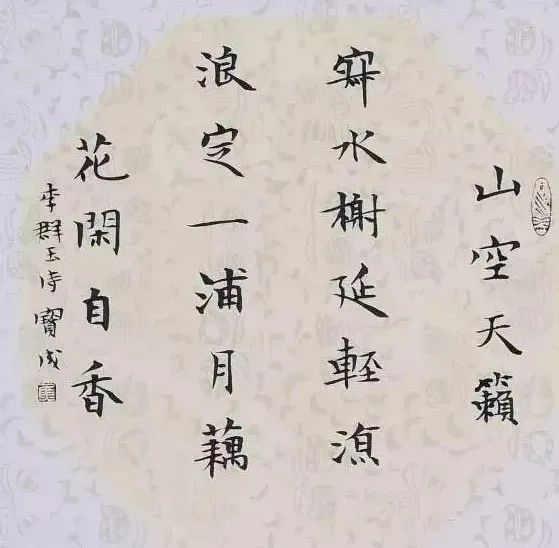 山空天籟
寂水榭延輕涼
浪定一浦月藕
花閑自香
李群玉詩 寶成